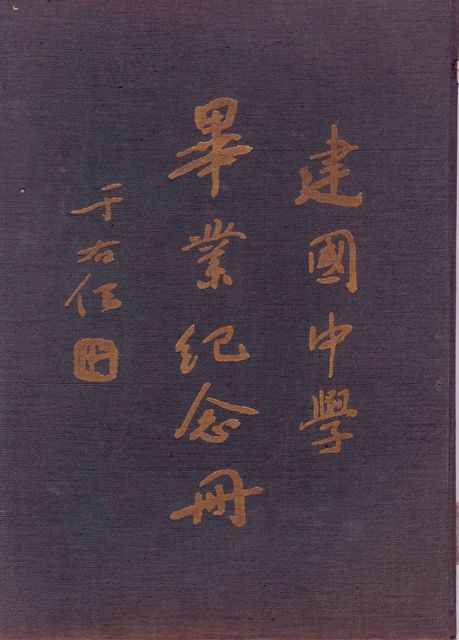 建國中學
畢業紀念冊
于右任